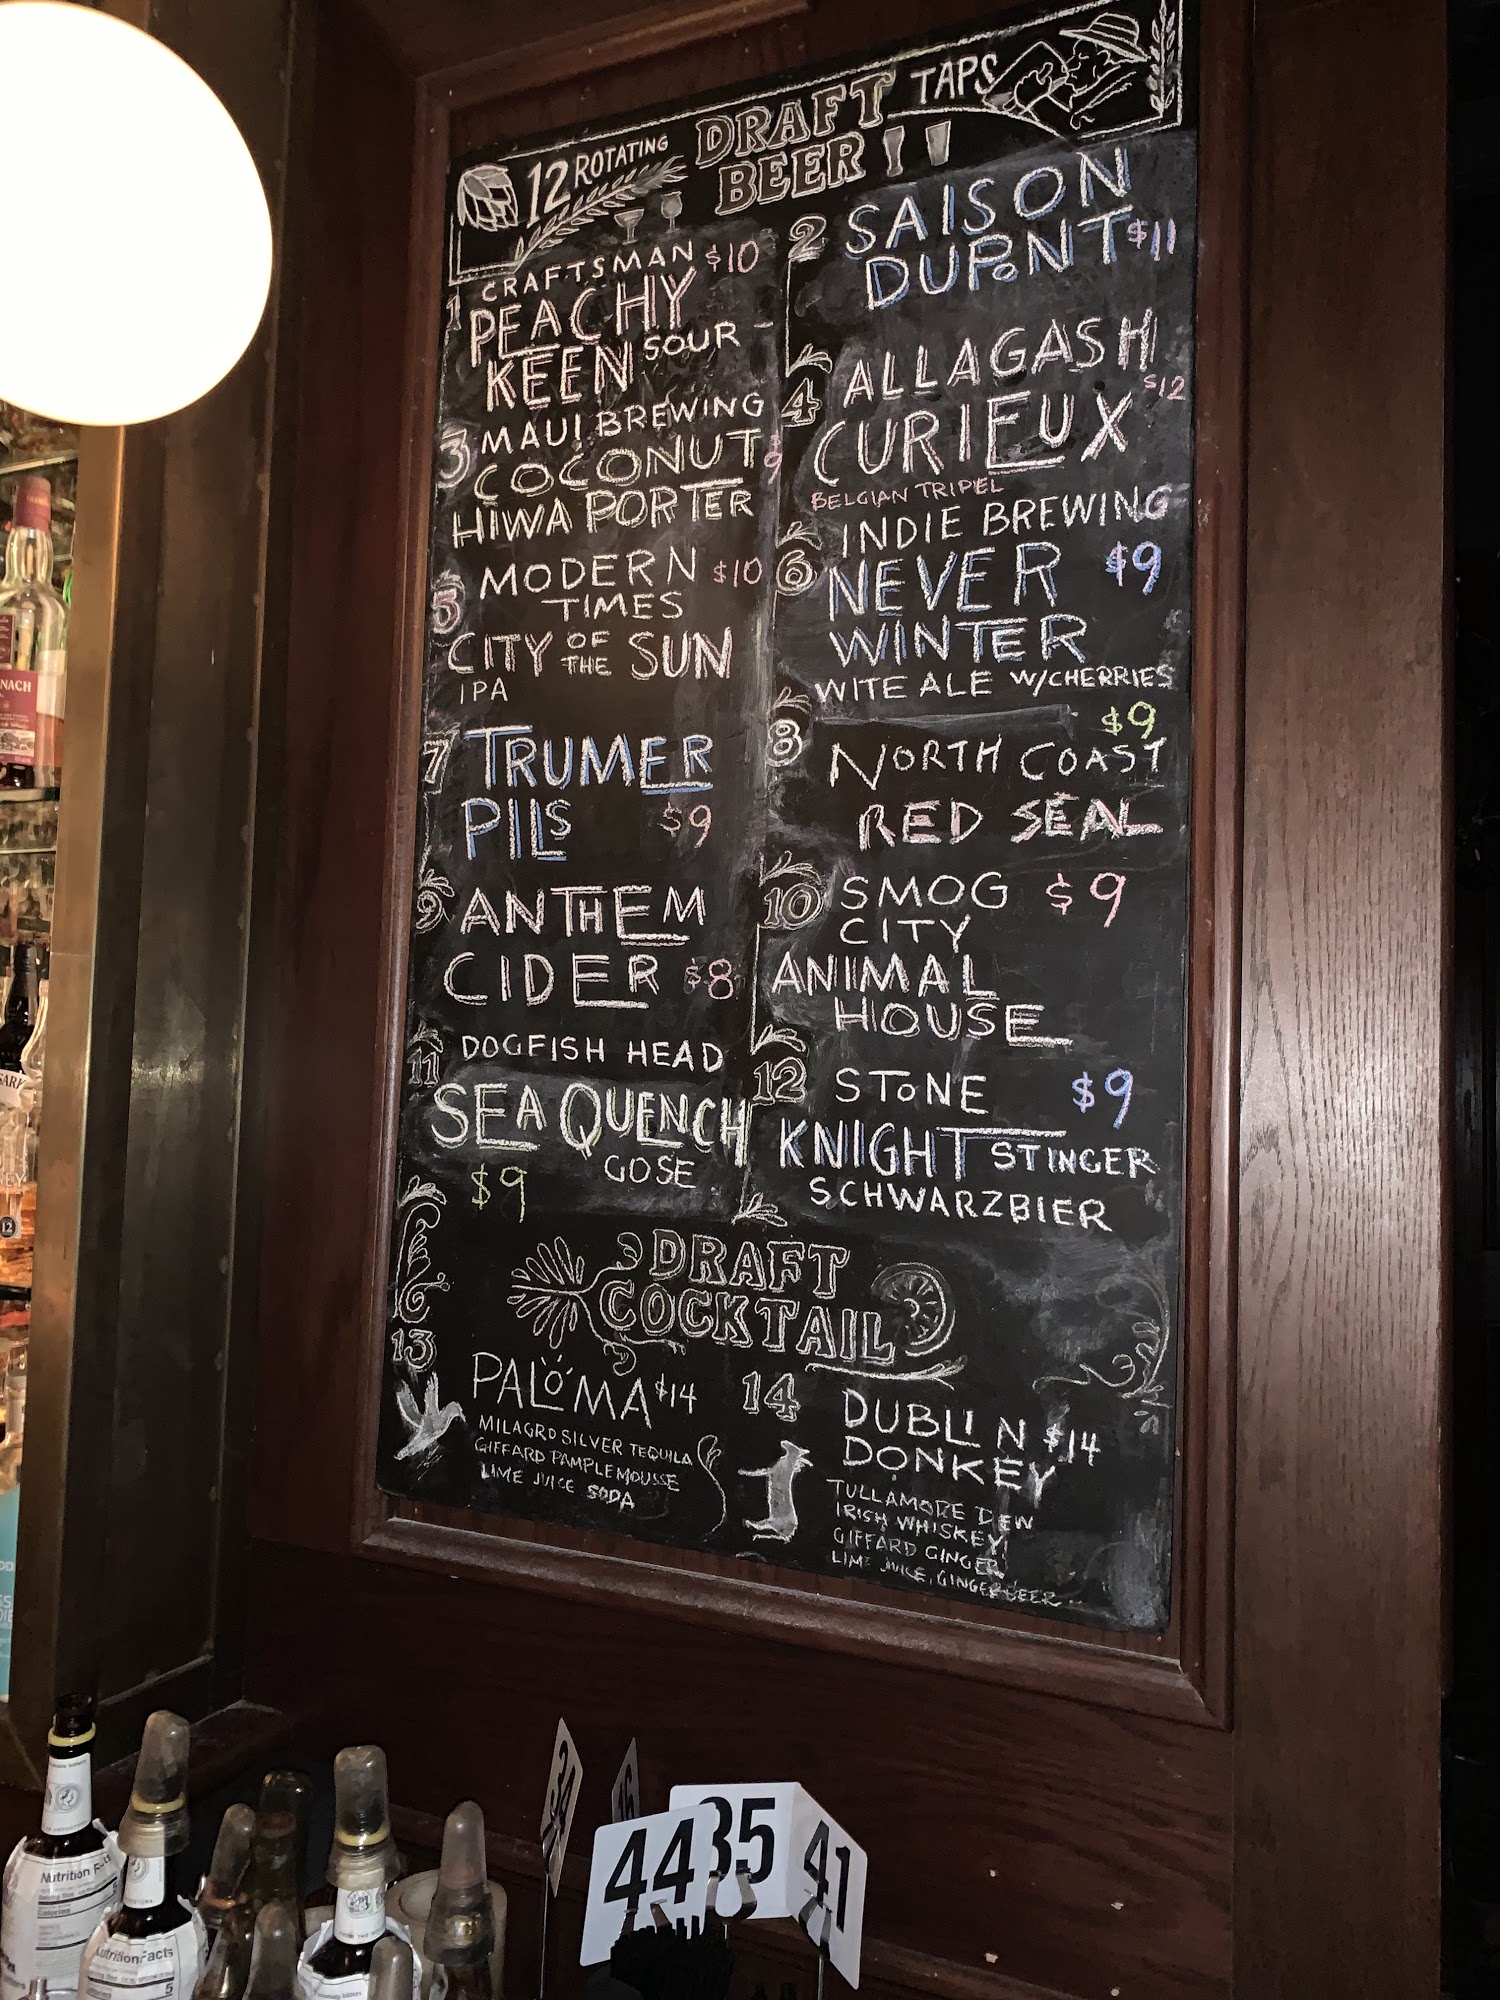 12 ROTATING DRAFT BEER TAPS
1 CRAFTSMAN $10
PEACHY
KEEN SOUR
2 SAISON
DUPONT $11
3 MAUI BREWING
COCONUT $9
HIWA PORTER
4 ALLAGASH
$12
CURIEUX
BELGIAN TRIPEL
5 MODERN $10
TIMES
CITY OF THE SUN
IPA
6 INDIE BREWING
NEVER $9
WINTER
WITE ALE W/CHERRIES
7 TRUMER
PILS $9
8 $9
NORTH COAST
RED SEAL
9 ANTHEM
CIDER $8
10 SMOG $9
CITY
ANIMAL
HOUSE
11 DOGFISH HEAD
SEA QUENCH
GOSE
$9
12 STONE $9
KNIGHT STINGER
SCHWARZBIER
DRAFT
COCKTAIL
13
PALOMA $14
MILAGRO SILVER TEQUILA
GIFFARD PAMPLEMOUSSE
LIME JUICE SODA
14 DUBLIN $14
DONKEY
TULLAMORE DEW
IRISH WHISKEY
GIFFARD GINGER
LIME JUICE, GINGER BEER
NACH
12
34
44
35
41
Nutrition Facts
Nutrition Facts